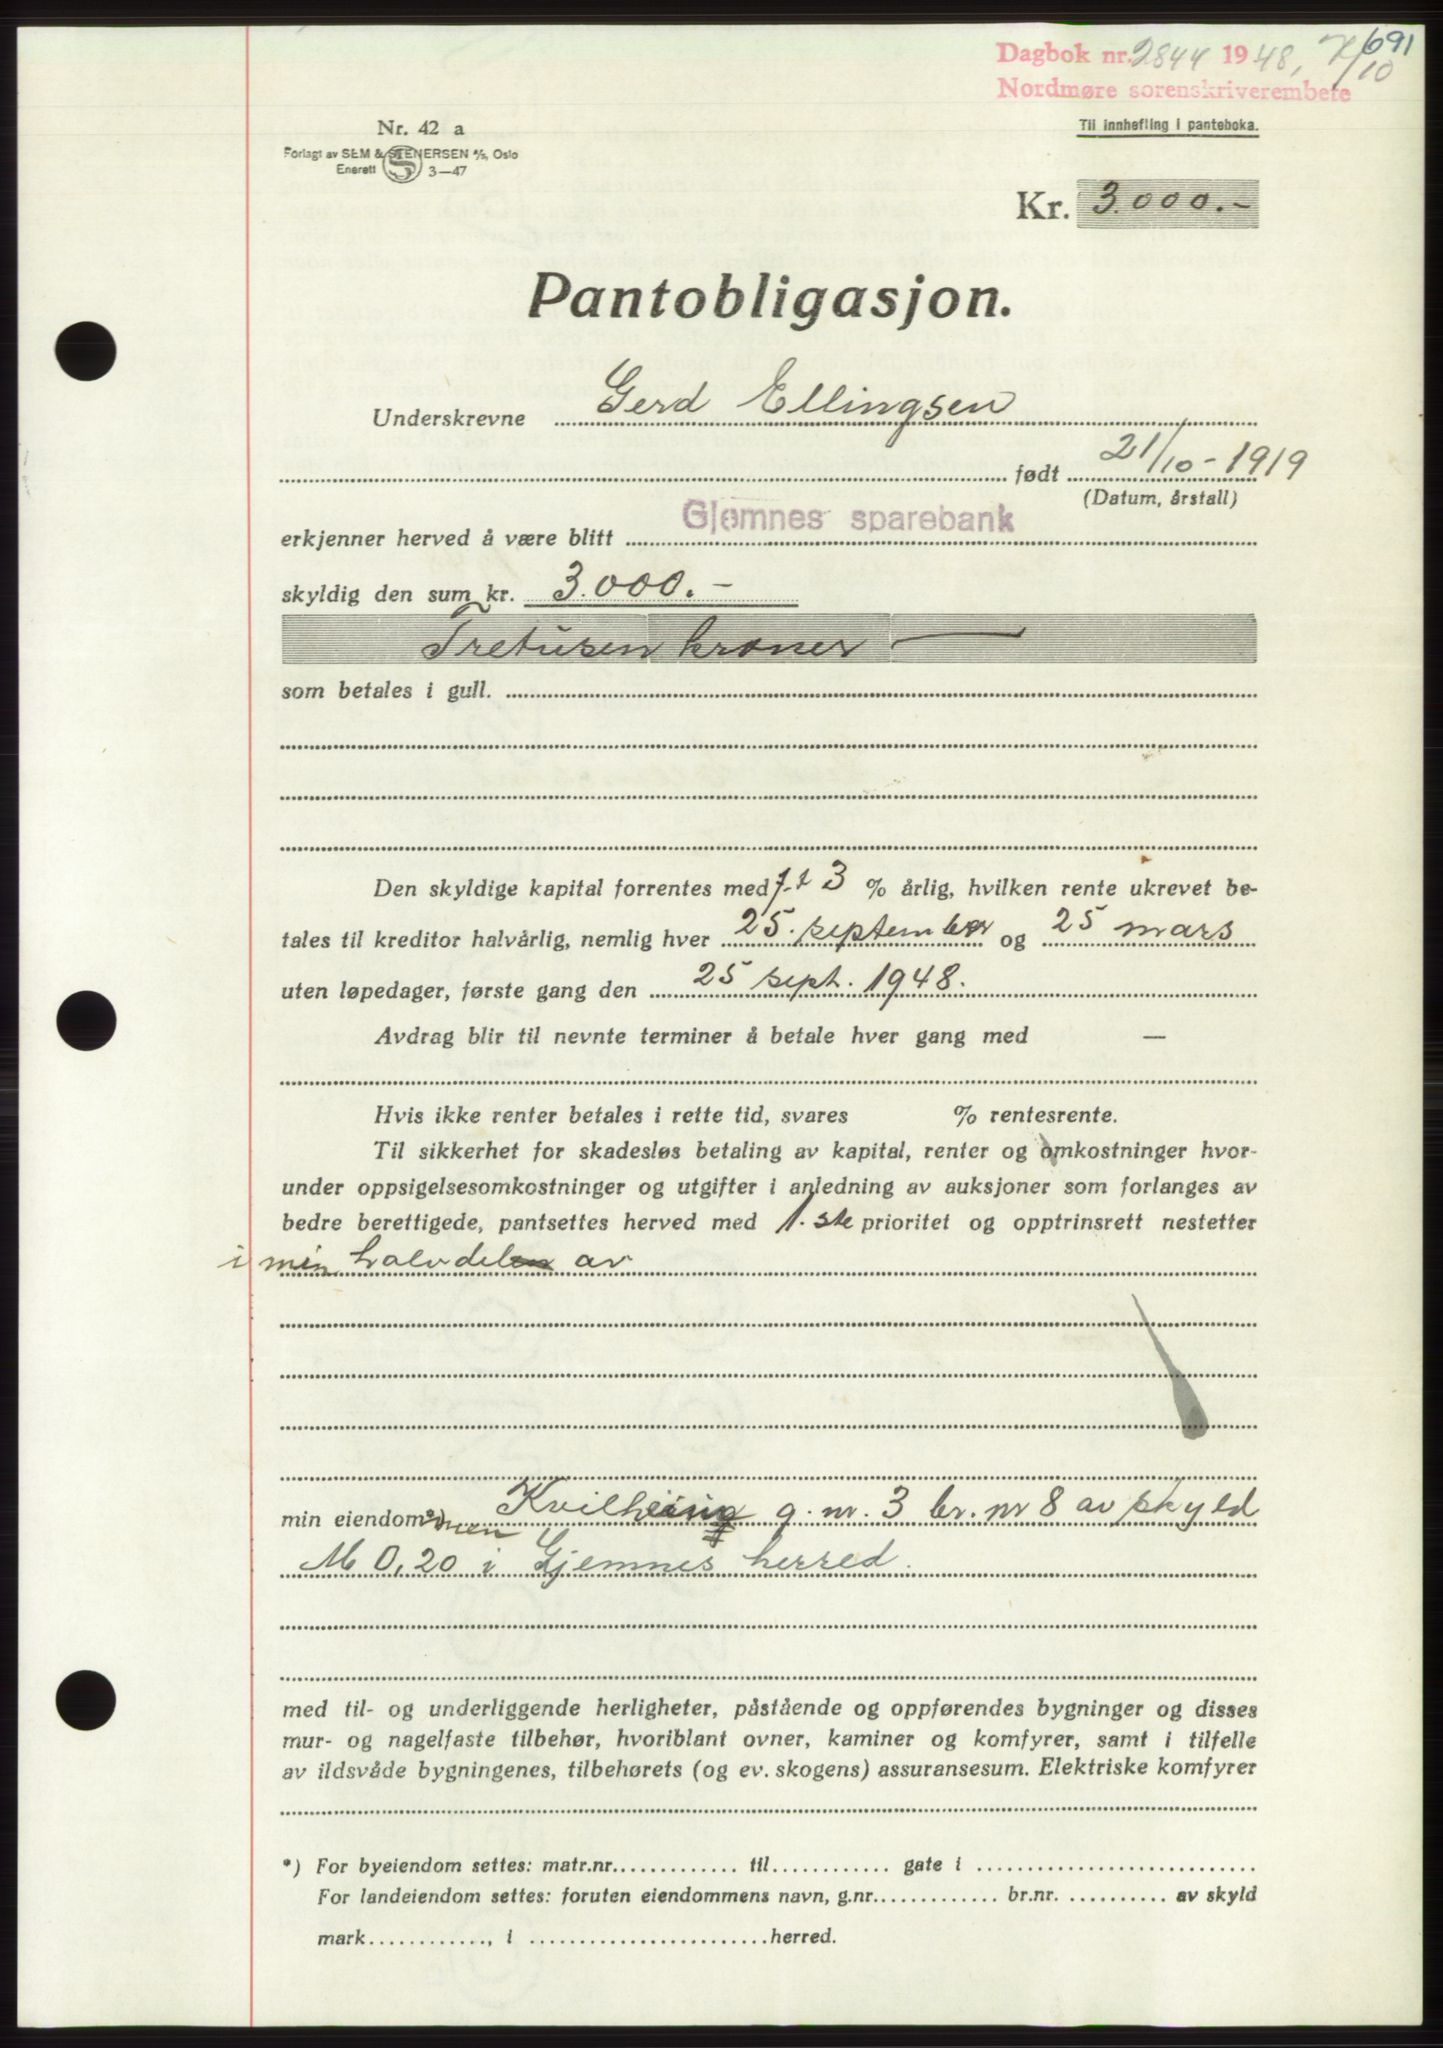 691
Dagbok nr. 2844 1948, 7/10
Nordmøre sorenskriverembete
Til innhefling i panteboka.
Nr. 42 a
Forlagt av SEM & STENERSEN A/S, Oslo
Enerett S 3—47
Kr. 3.000.-
Pantobligasjon.
Underskrevne Gerd Ellingsen
født 21/10 - 1919
(Datum, årstall)
erkjenner herved å være blitt Gjemnes sparebank
skyldig den sum kr. 3.000.-
Tretusen kroner —
som betales i gull.
Den skyldige kapital forrentes med f.t 3 % årlig, hvilken rente ukrevet be-
tales til kreditor halvårlig, nemlig hver 25. september og 25 mars
uten løpedager, første gang den 25 sept. 1948.
Avdrag blir til nevnte terminer å betale hver gang med —
Hvis ikke renter betales i rette tid, svares % rentesrente.
Til sikkerhet for skadesløs betaling av kapital, renter og omkostninger hvor-
under oppsigelsesomkostninger og utgifter i anledning av auksjoner som forlanges av
bedre berettigede, pantsettes herved med 1. ste prioritet og opptrinsrett nestetter
i min halvdel av
min eiendom*) men Kvilheim g. nr. 3 br. nr 8 av skyld
M 0,20 i Gjemnes herred.
med til- og underliggende herligheter, påstående og oppførendes bygninger og disses
mur- og nagelfaste tilbehør, hvoriblant ovner, kaminer og komfyrer, samt i tilfelle
av ildsvåde bygningenes, tilbehørets (og ev. skogens) assuransesum. Elektriske komfyrer
*) For byeiendom settes: matr.nr. til gate i
For landeiendom settes: foruten eiendommens navn, g.nr. br.nr. av skyld
mark , i herred.